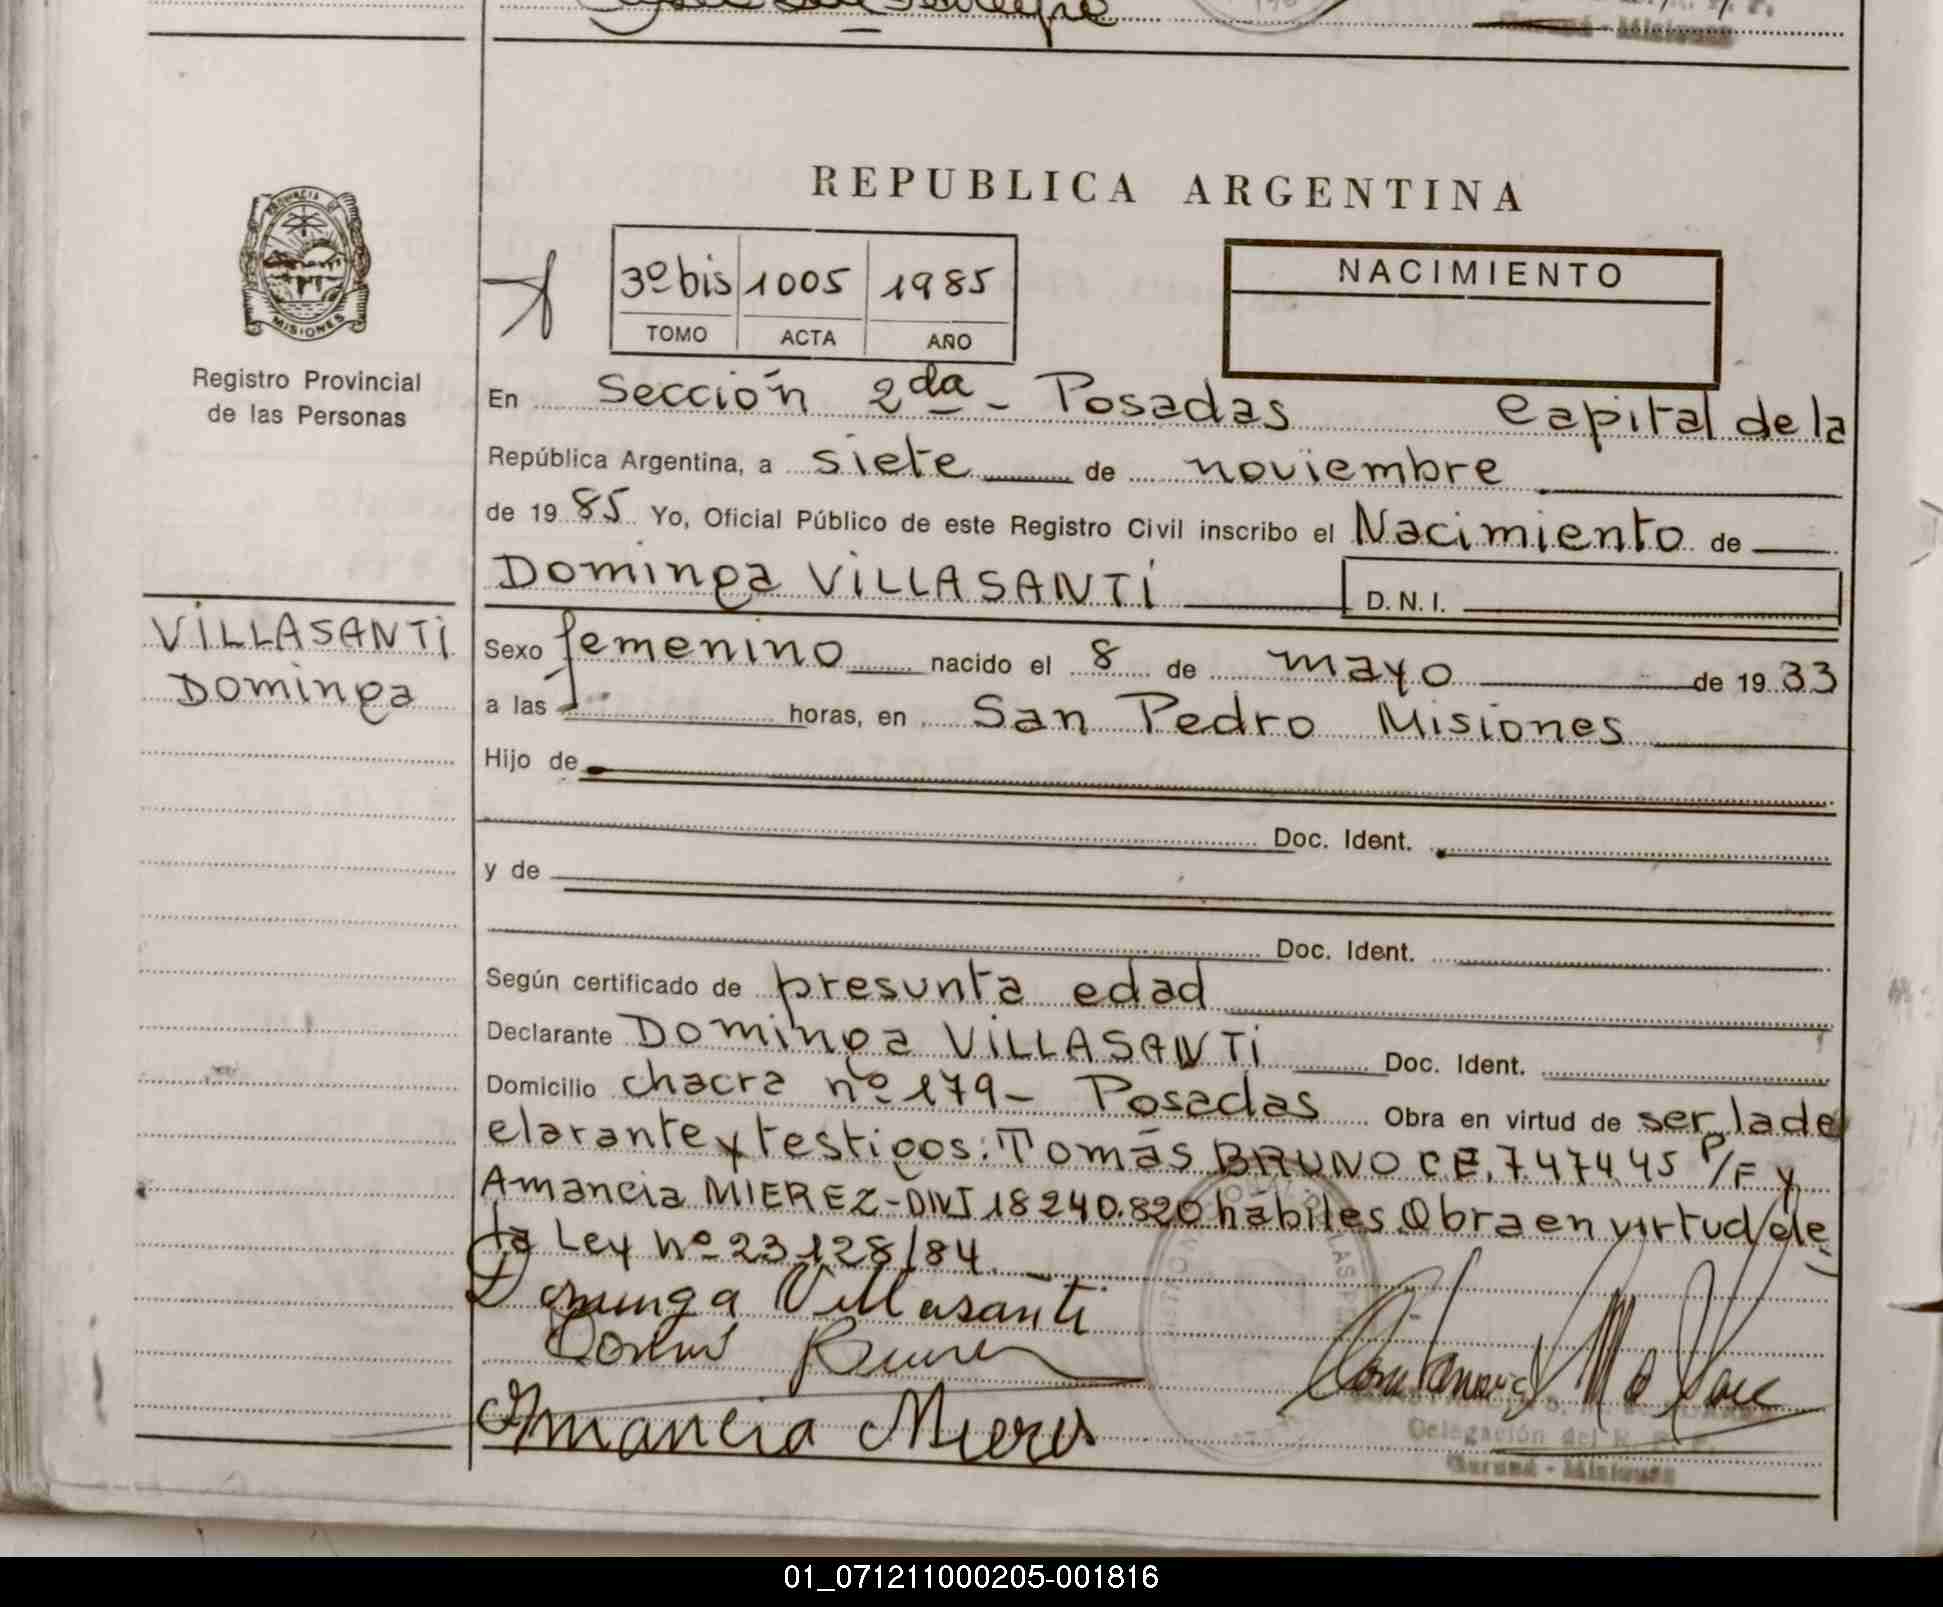 REPUBLICA ARGENTINA
PROVINCIA DE
MISIONES
Registro Provincial
de las Personas
3º bis 1005 1985
TOMO ACTA AÑO
NACIMIENTO
En Sección 2da - Posadas Capital de la
República Argentina, a siete de noviembre
de 1985 Yo, Oficial Público de este Registro Civil inscribo el Nacimiento de
Dominga VILLASANTI D.N.I.
VILLASANTI
Dominga
Sexo femenino nacido el 8 de mayo de 1933
a las horas, en San Pedro Misiones
Hijo de
Doc. Ident.
y de
Doc. Ident.
Según certificado de presunta edad
Declarante Dominga VILLASANTI Doc. Ident.
Domicilio chacra nº 179 - Posadas Obra en virtud de ser la de
clarante y testigos: Tomás BRUNO C.E. 747445 P/F y
Amancia MIEREZ - DNI 18240.820 hábiles Obra en virtud de
la Ley Nº 23.128/84
Dominga Villasanti
Amancia Mieres
Delegación del R. P. P.
01_071211000205-001816